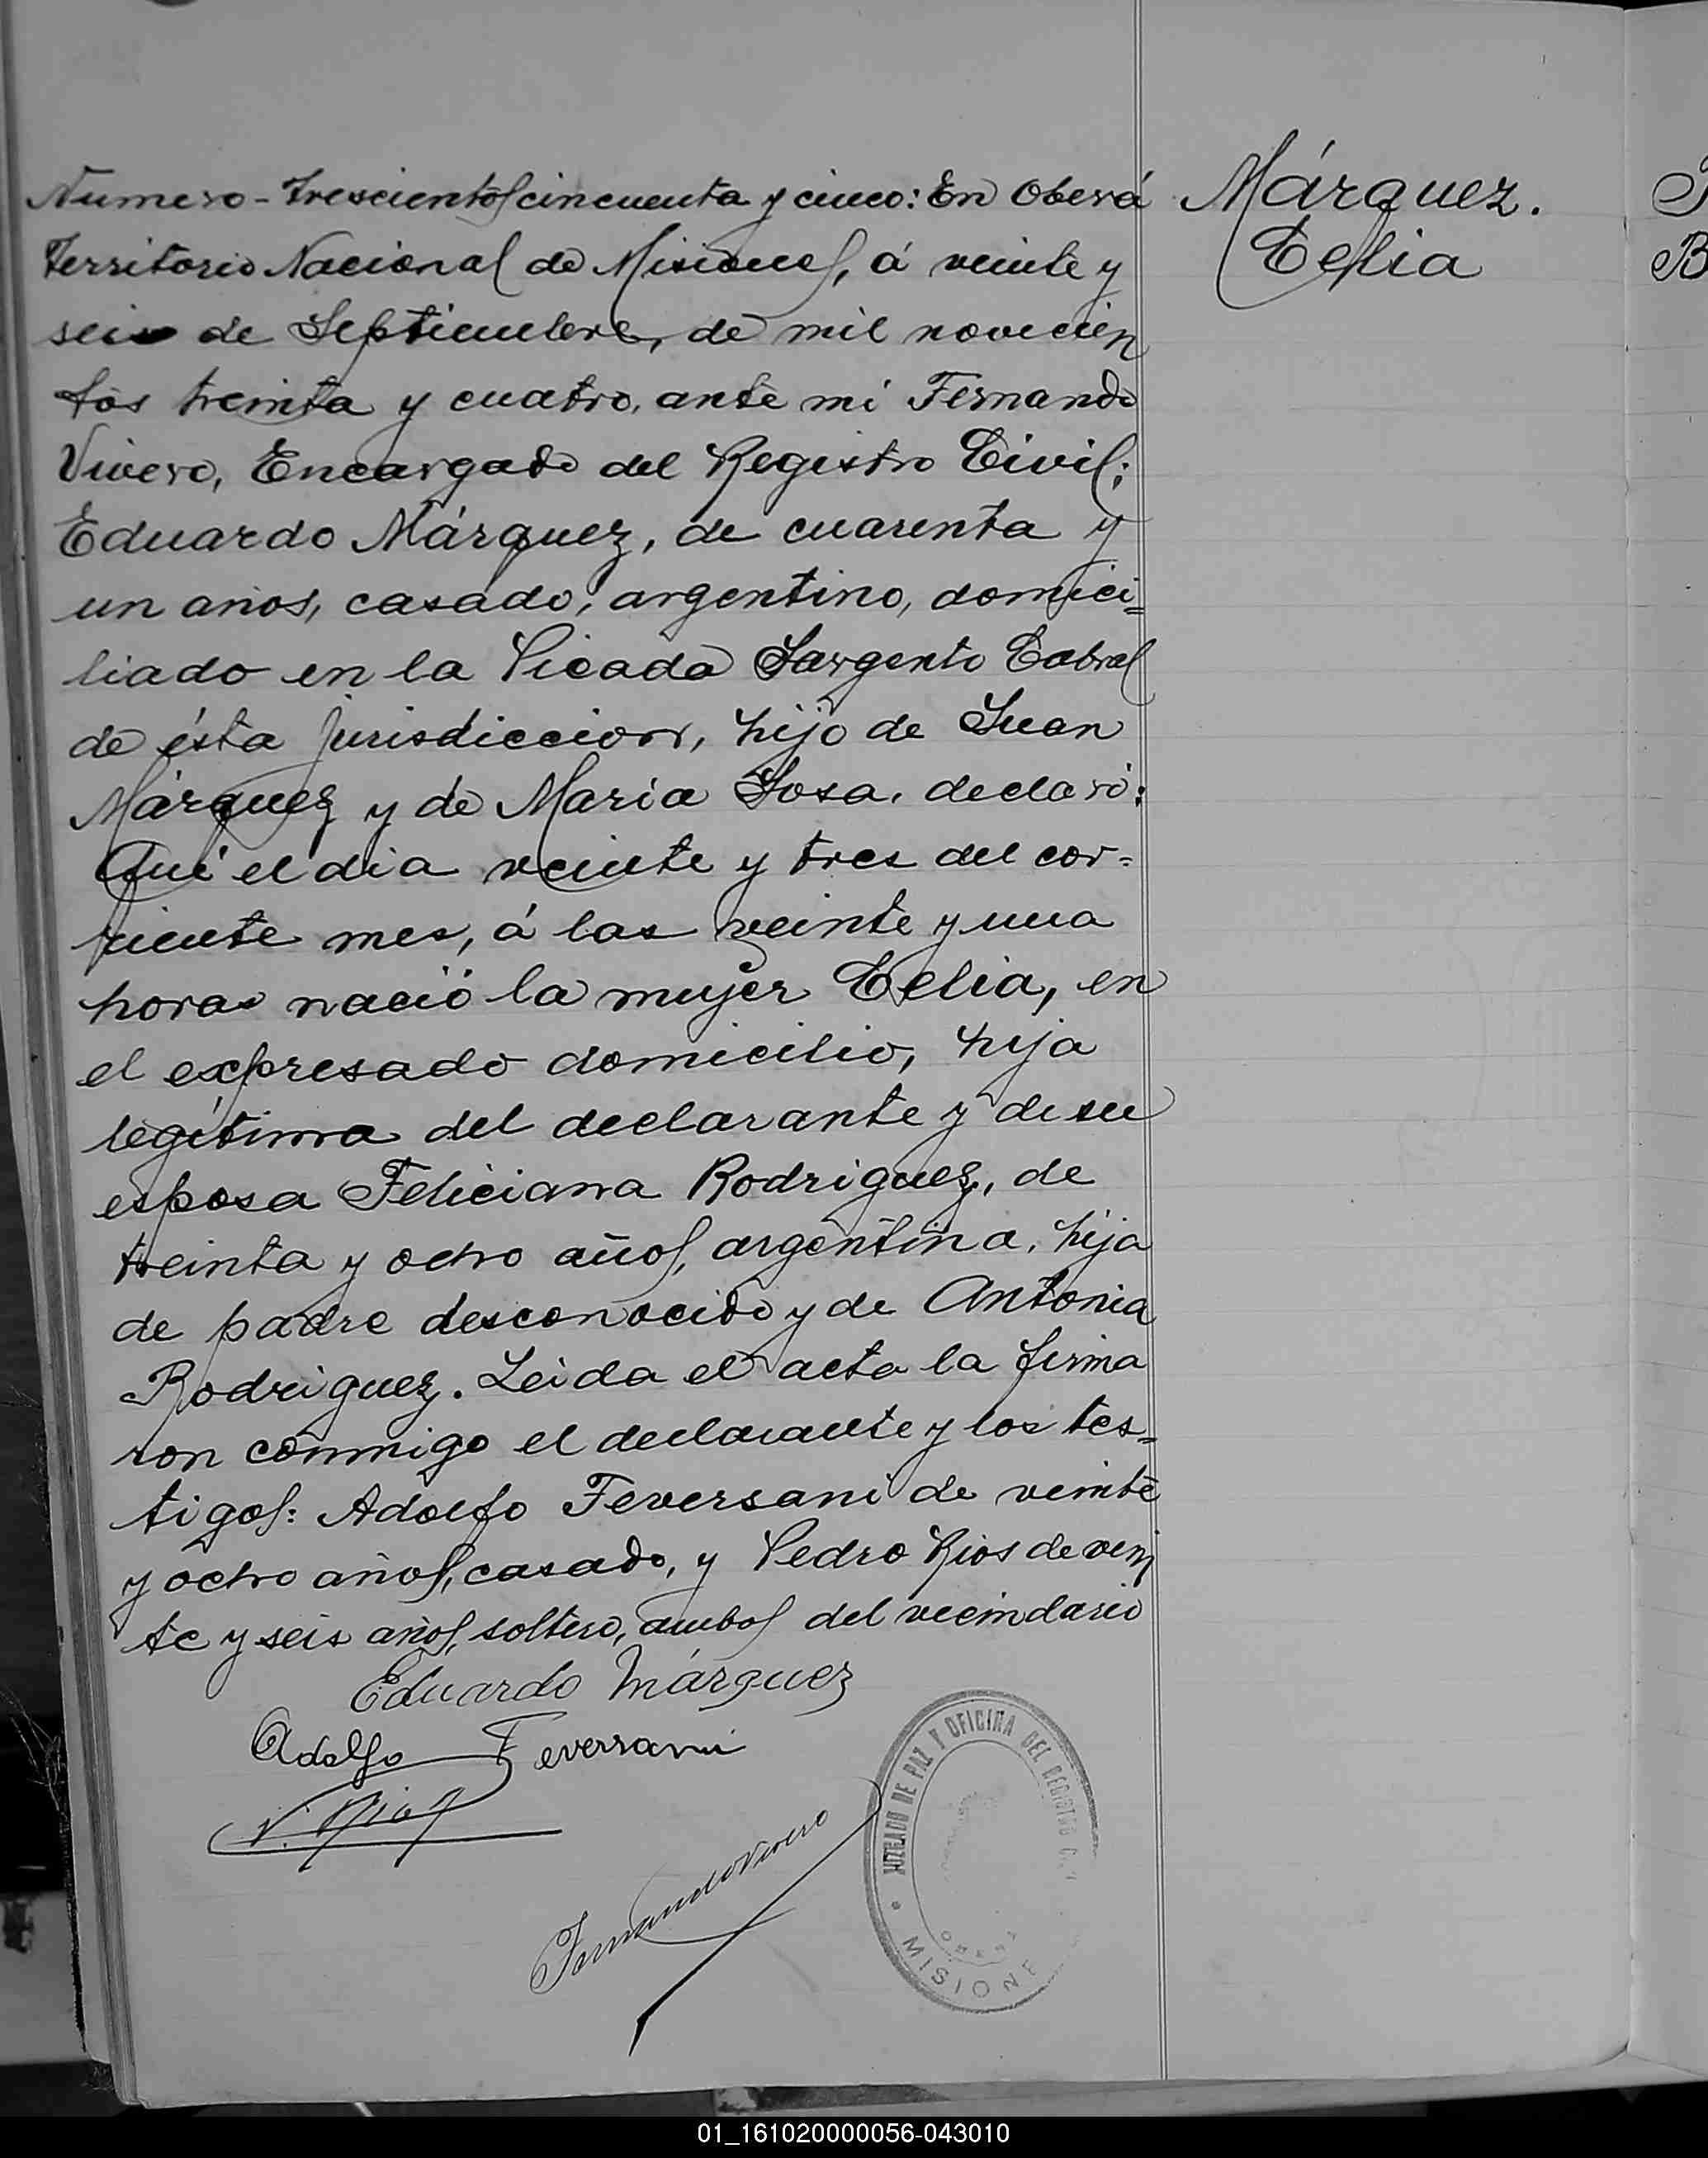 Numero - Trescientos cincuenta y cinco: En Oberá
Territorio Nacional de Misiones, á veinte y
seis de Septiembre, de mil novecien
tos treinta y cuatro, ante mi Fernando
Vivero, Encargado del Registro Civil;
Eduardo Márquez, de cuarenta y
un años, casado, argentino, domici=
liado en la Picada Sargento Cabral
de ésta jurisdiccion, hijo de Juan
Márquez y de Maria Sosa, declaró:
Qué el dia veinte y tres del cor=
riente mes, á las veinte y una
horas nació la mujer Celia, en
el expresado domicilio, hija
legítima del declarante y de su
esposa Feliciana Rodriguez, de
treinta y ocho años, argentina, hija
de padre desconocido y de Antonia
Rodriguez. Leida el acta la firma
ron conmigo el declarante y los tes=
tigos: Adolfo Feversani de veinte
y ocho años, casado, y Pedro Rios de vein
te y seis años, soltero, ambos del vecindario
Eduardo Márquez
Adolfo Feversani
P. Rios
Fernando Vivero
JUZGADO DE PAZ Y OFICINA DEL REGISTRO C
OBERA
MISIONE
Márquez.
Celia
B
01_161020000056-043010